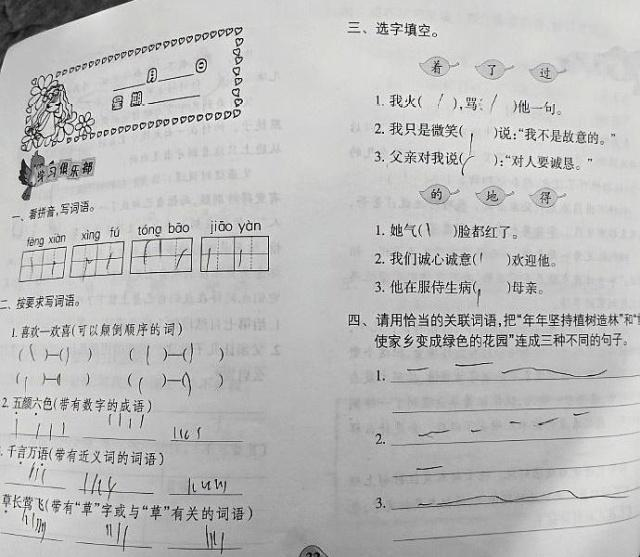 学习俱乐部
一、看拼音,写词语。
fēng xiàn xìng fú tóng bāo jiāo yàn
二、按要求写词语。
1. 喜欢—欢喜(可以颠倒顺序的词)
( )—( ) ( )—( )
( )—( ) ( )—( )
2. 五颜六色(带有数字的成语)
千言万语(带有近义词的词语)
草长莺飞(带有“草”字或与“草”有关的词语)
三、选字填空。
着 了 过
1. 我火( ),骂( )他一句。
2. 我只是微笑( )说:“我不是故意的。”
3. 父亲对我说( ):“对人要诚恳。”
的 地 得
1. 她气( )脸都红了。
2. 我们诚心诚意( )欢迎他。
3. 他在服侍生病( )母亲。
四、请用恰当的关联词语,把“年年坚持植树造林”和“
使家乡变成绿色的花园”连成三种不同的句子。
1.
2.
3.